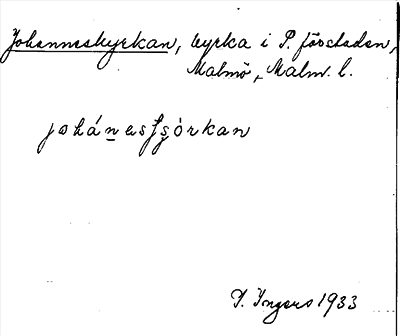 Johanneskyrkan, kyrka i S. förstaden,
Malmö, Malm. l.
johánesʃʂòrkan
I. Ingers 1933